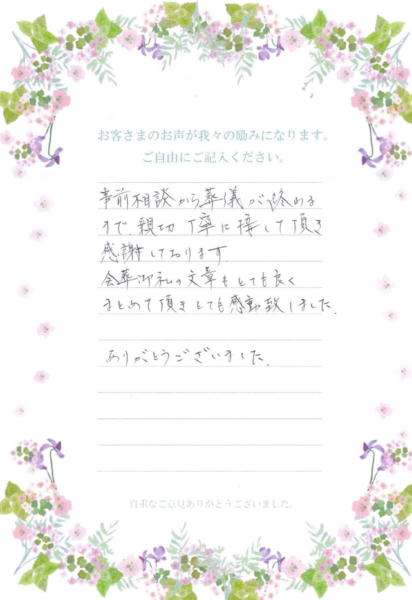 お客さまのお声が我々の励みになります。
ご自由にご記入ください。
事前相談から葬儀が終める
まで親切丁寧に接して頂き
感謝しております
会葬御礼の文章もとても良く
まとめて頂きとても感動致しました.
ありがとうございました.
貴重なご意見ありがとうございました。